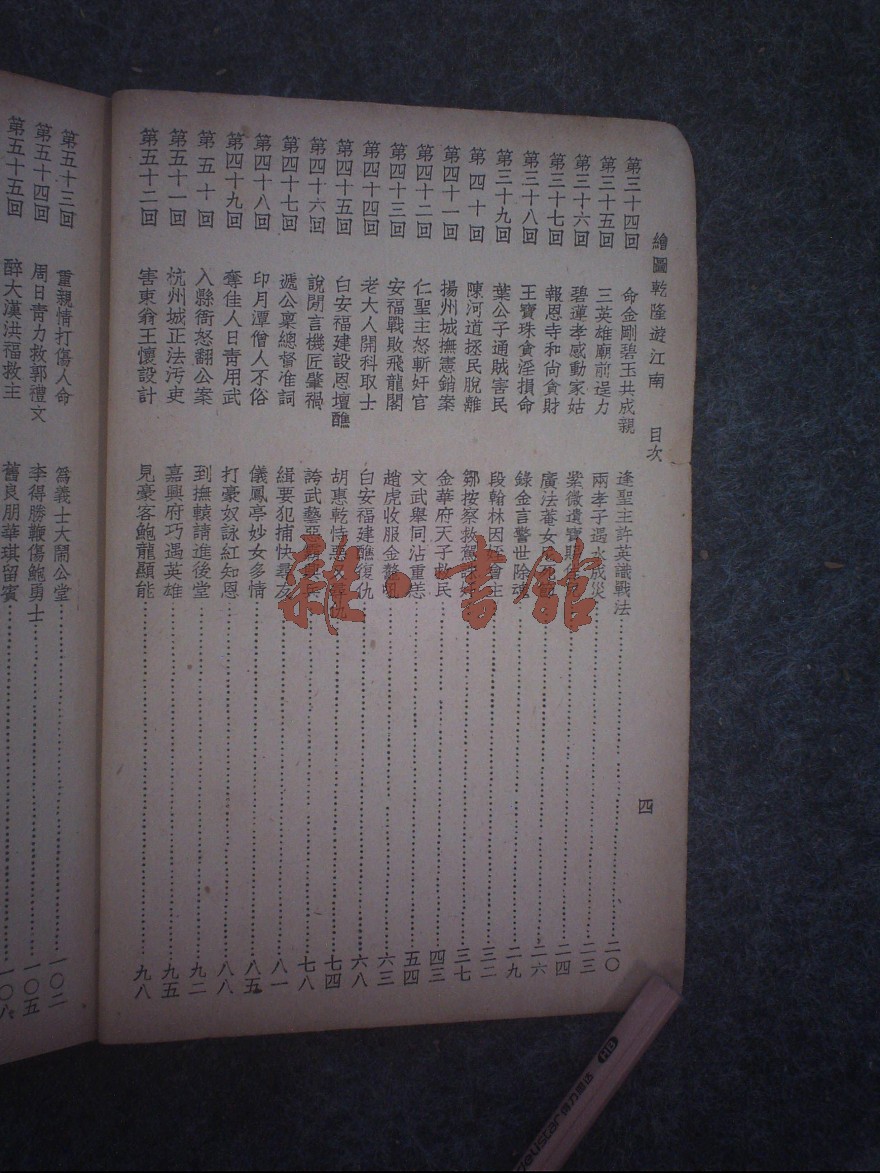 繪圖乾隆遊江南 目次 四
第三十四回 命金剛碧玉共成親 逢聖主許英識戰法 二〇
第三十五回 三英雄廟前逞力 兩孝子遇水成災 二三
第三十六回 碧蓮孝感動家姑 紫薇遺寶賜 二四
第三十七回 報恩寺和尚貪財 廣法菴女 二六
第三十八回 王寶珠貪淫損命 錄金言警世除 二九
第三十九回 葉公子通賊害民 段翰林因 會主 三二
第四十回 陳河道拯民脫離 鄒按察救駕 三七
第四十一回 揚州城撫憲銷案 金華府天子救民 四三
第四十二回 仁聖主怒斬奸官 文武舉同沾重恙 五四
第四十三回 安福戰敗飛龍閣 趙虎收服金鰲 六三
第四十四回 老大人開科取士 白安福建醮復仇 六八
第四十五回 白安福建設恩壇醮 胡惠乾恃惡 七四
第四十六回 說閒言機匠肇禍 誇武藝惡 七八
第四十七回 遞公稟總督准詞 緝要犯捕快尋友 八一
第四十八回 印月潭僧人不俗 儀鳳亭妙女多情 八五
第四十九回 奪佳人日青用武 打豪奴詠紅知恩 八八
第五十回 入縣衙怒翻公案 到撫轅請進後堂 九二
第五十一回 杭州城正法汚吏 嘉興府巧遇英雄 九五
第五十二回 害東翁王懷設計 見豪客鮑龍顯能 九八
第五十三回 重親情打傷人命 爲義士大鬧公堂 一〇二
第五十四回 周日青力救郭禮文 李得勝鞭傷鮑勇士 一〇五
第五十五回 醉大漢洪福救主 舊良朋華琪留賓 一〇八
雜·書館
HB